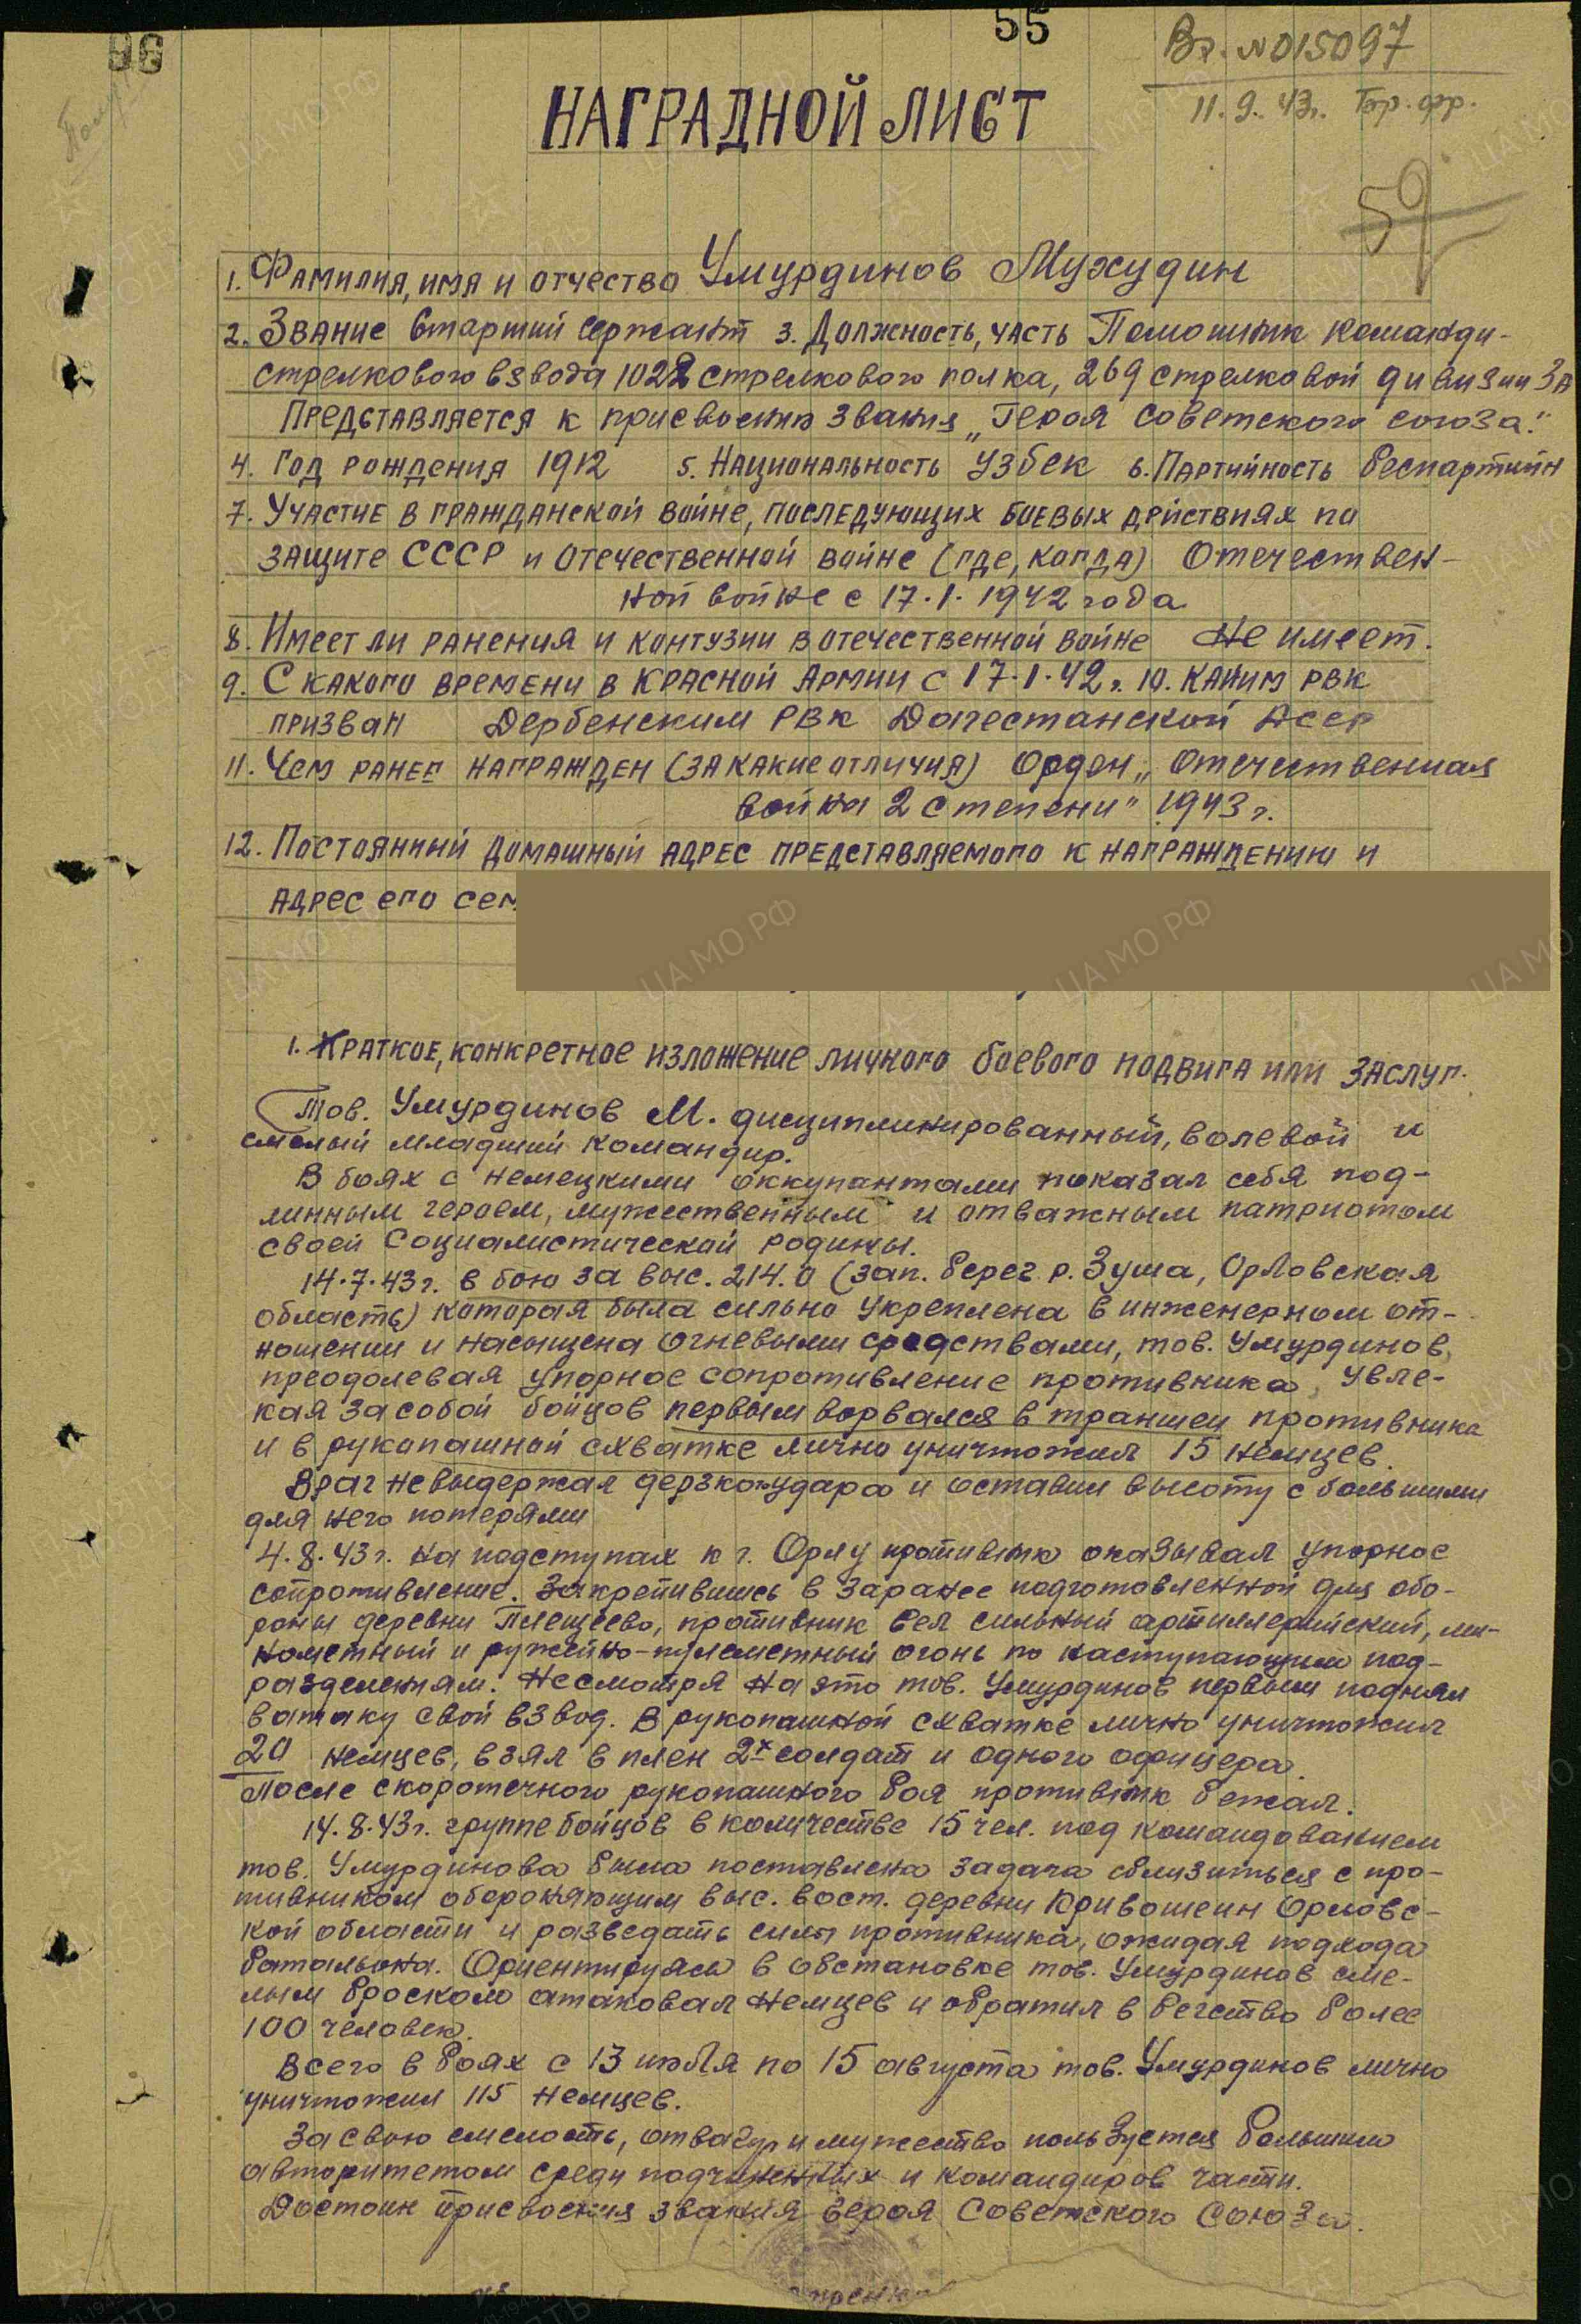 96
55
Вх. №015097
11.9.43г. Бр. фр.
НАГРАДНОЙ ЛИСТ
59
1. Фамилия, имя и отчество Умурдинов Мухудин
2. Звание Старший сержант 3. Должность, часть Помощник команди-
стрелкового взвода 1022 стрелкового полка, 269 стрелковой дивизии 3А
Представляется к присвоению звания „Героя Советского союза."
4. Год рождения 1912 5. Национальность Узбек 6. Партийность беспартийн
7. Участие в гражданской войне, последующих боевых действиях по
защите СССР и отечественной войне (где, когда) Отечествен-
ной войне с 17.1.1942 года
8. Имеет ли ранения и контузии в отечественной войне Не имеет.
9. С какого времени в Красной Армии с 17.1.42г. 10. Каким РВК
призван Дербенским РВК Дагестанской Асср
11. Чем ранее награжден (за какие отличия) Орден „Отечественная
война 2 степени" 1943г.
12. Постоянный домашный адрес представляемого к награждению и
адрес его сем
1. Краткое, конкретное изложение личного боевого подвига или заслуг.
Тов. Умурдинов М. дисциплинированный, волевой и
смелый младший командир.
В боях с немецкими оккупантами показал себя под-
линным героем, мужественным и отважным патриотом
своей Социалистической родины.
14.7.43г. в бою за выс. 214.0 (зап. берег р. Зуша, Орловская
область) которая была сильно укреплена в инженерном от-
ношении и насыщена огневыми средствами, тов. Умурдинов,
преодолевая упорное сопротивление противника, увле-
кая за собой бойцов первым ворвался в траншеи противника
и в рукопашной схватке лично уничтожил 15 немцев.
Враг не выдержал дерзкого удара и оставил высоту с большими
для него потерями
4.8.43г. на подступах к г. Орлу противник оказывал упорное
сопротивление. Закрепившись в заранее подготовленной для обо-
роны деревни Плещеево, противник вел сильный артиллерийский, ми-
нометный и ружейно-пулеметный огонь по наступающим под-
разделениям. Несмотря на это тов. Умурдинов первым поднял
в атаку свой взвод. В рукопашной схватке лично уничтожил
20 немцев, взял в плен 2х солдат и одного офицера.
После скоротечного рукопашного боя противник бежал.
14.8.43г. группе бойцов в количестве 15 чел. под командованием
тов. Умурдинова была поставлена задача сблизиться с про-
тивником обороняющим выс. вост. деревни Кривошеин Орловс-
кой области и разведать силы противника, ожидая подхода
батальона. Ориентируясь в обстановке тов. Умурдинов сме-
лым броском атаковал немцев и обратил в бегство более
100 человек.
Всего в боях с 13 июля по 15 августа тов. Умурдинов лично
уничтожил 115 немцев.
За свою смелость, отвагу и мужество пользуется большим
авторитетом среди подчиненных и командиров части.
Достоин присвоения звания Героя Советского Союза.